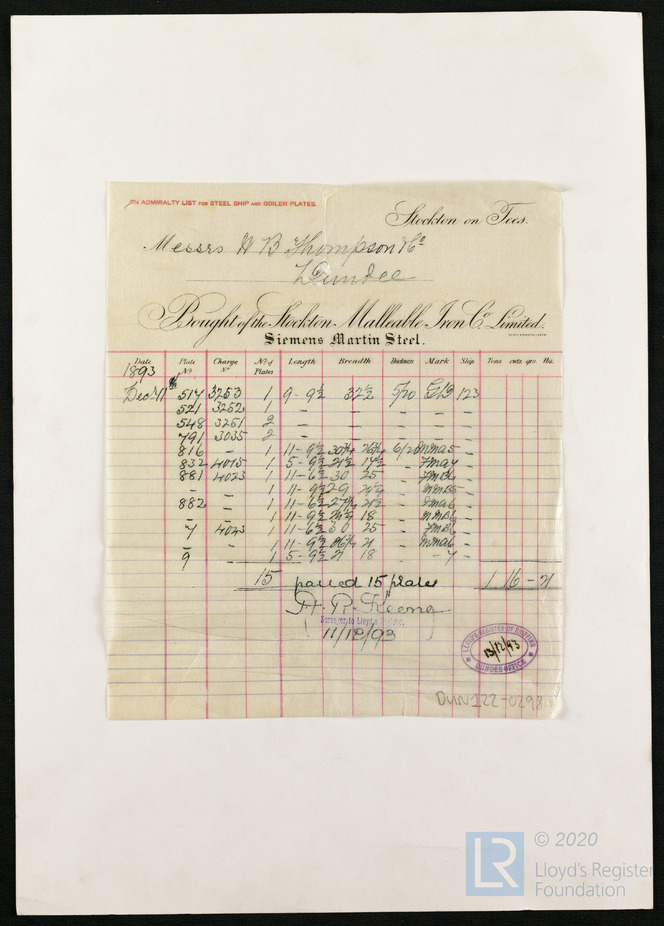 ON ADMIRALTY LIST FOR STEEL SHIP AND BOILER PLATES.
Stockton on Tees.
Messrs W B Thompson & Co
Dundee
Bought of the Stockton Malleable Iron Co. Limited.
Siemens Martin Steel.
Date Plate No. Charge No. No. of Plates Length Breadth Thickness Mark Ship Tons cwts qrs. lbs.
1893
Decr 11 517 3253 1 9 - 9½ 32½ 5/20 123
521 3252 1 - - - - -
548 3251 2 - - - - -
791 3035 2 - - - - -
816 - 1 11 - 9½ 30¾ 26¾ 6/20 -
832 4015 1 5 - 9½ 21½ 17½ - -
881 4023 1 11 - 6½ 30 25 - -
- - 1 11 - 9½ 29 - -
882 - 1 11 - 6½ 21½ - -
- - 1 11 - 9½ 18 - -
7 4023 1 11 - 6½ 30 25 - -
- - 1 11 - 9½ 21 - -
9 1 5 - 9½ 21 18 - - 7 -
15 passed 15 plates 1 16 - 21
H. R. Keene
Surveyor to Lloyd's Register.
11/12/93
LLOYD'S REGISTER OF SHIPPING
13/12/93
DUNDEE OFFICE
DUN122-0298
LR
© 2020
Lloyd's Register
Foundation